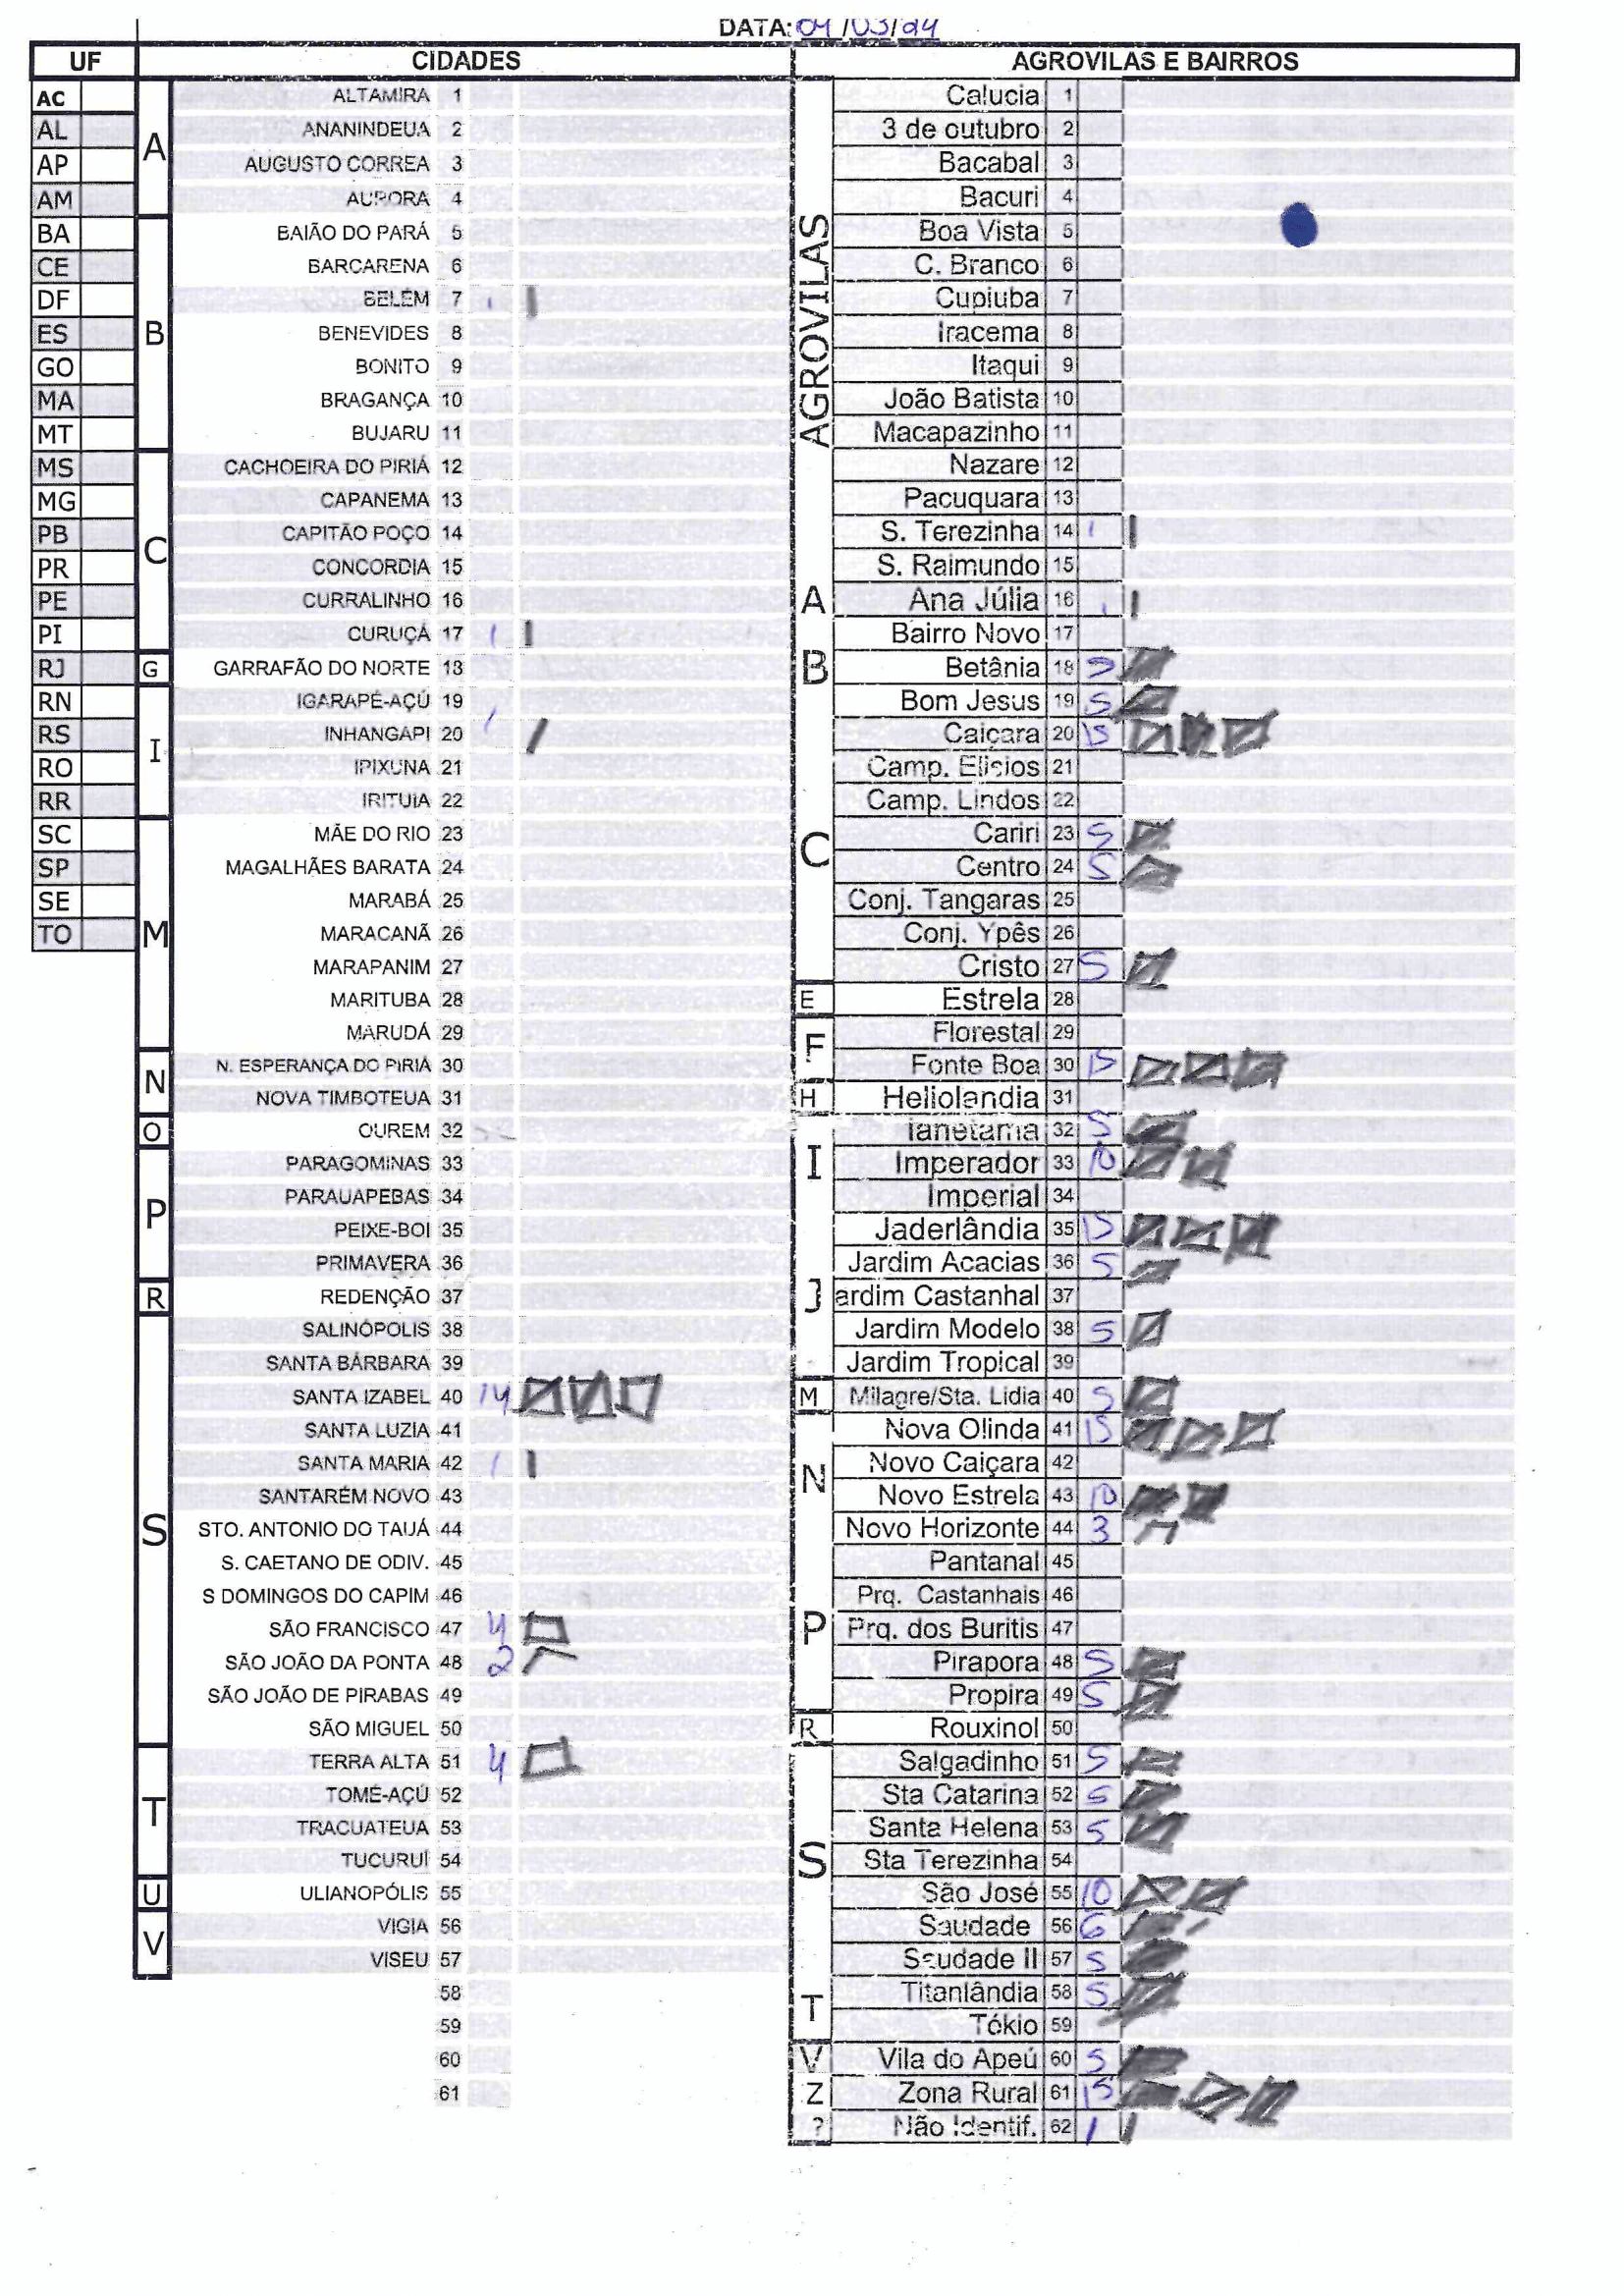 DATA: 04/03/24
UF CIDADES AGROVILAS E BAIRROS
AC
AL
AP
AM
BA
CE
DF
ES
GO
MA
MT
MS
MG
PB
PR
PE
PI
RJ
RN
RS
RO
RR
SC
SP
SE
TO
A
ALTAMIRA 1
ANANINDEUA 2
AUGUSTO CORREA 3
AURORA 4
B
BAIÃO DO PARÁ 5
BARCARENA 6
BELÉM 7 1
BENEVIDES 8
BONITO 9
BRAGANÇA 10
BUJARU 11
C
CACHOEIRA DO PIRIÁ 12
CAPANEMA 13
CAPITÃO POÇO 14
CONCORDIA 15
CURRALINHO 16
CURUÇÁ 17 1
G
GARRAFÃO DO NORTE 18
I
IGARAPÉ-AÇÚ 19
INHANGAPI 20 1
IPIXUNA 21
IRITUIA 22
M
MÃE DO RIO 23
MAGALHÃES BARATA 24
MARABÁ 25
MARACANÃ 26
MARAPANIM 27
MARITUBA 28
MARUDÁ 29
N
N. ESPERANÇA DO PIRIÁ 30
NOVA TIMBOTEUA 31
O
OUREM 32
P
PARAGOMINAS 33
PARAUAPEBAS 34
PEIXE-BOI 35
PRIMAVERA 36
R
REDENÇÃO 37
S
SALINÓPOLIS 38
SANTA BÁRBARA 39
SANTA IZABEL 40 14
SANTA LUZIA 41
SANTA MARIA 42 1
SANTARÉM NOVO 43
STO. ANTONIO DO TAUÁ 44
S. CAETANO DE ODIV. 45
S DOMINGOS DO CAPIM 46
SÃO FRANCISCO 47 4
SÃO JOÃO DA PONTA 48 2
SÃO JOÃO DE PIRABAS 49
SÃO MIGUEL 50
T
TERRA ALTA 51 4
TOMÉ-AÇÚ 52
TRACUATEUA 53
TUCURUÍ 54
U
ULIANOPÓLIS 55
V
VIGIA 56
VISEU 57
58
59
60
61
AGROVILAS
Calucia 1
3 de outubro 2
Bacabal 3
Bacuri 4
Boa Vista 5
C. Branco 6
Cupiuba 7
Iracema 8
Itaqui 9
João Batista 10
Macapazinho 11
Nazare 12
Pacuquara 13
S. Terezinha 14 1
S. Raimundo 15
A
Ana Júlia 16 1
Bairro Novo 17
B
Betânia 18 5
Bom Jesus 19 5
Caiçara 20 15
Camp. Elisios 21
Camp. Lindos 22
C
Cariri 23 5
Centro 24 5
Conj. Tangaras 25
Conj. Ypês 26
Cristo 27 5
E
Estrela 28
F
Florestal 29
Fonte Boa 30 15
H
Heliolandia 31
I
Ianetama 32 5
Imperador 33 10
Imperial 34
Jaderlândia 35 15
Jardim Acacias 36 5
J
ardim Castanhal 37
Jardim Modelo 38 5
Jardim Tropical 39
M
Milagre/Sta. Lidia 40 5
N
Nova Olinda 41 15
Novo Caiçara 42
Novo Estrela 43 10
Novo Horizonte 44 3
P
Pantanal 45
Prq. Castanhais 46
Prq. dos Buritis 47
Pirapora 48 5
Propira 49 5
R
Rouxinol 50
S
Salgadinho 51 5
Sta Catarina 52 5
Santa Helena 53 5
Sta Terezinha 54
São José 55 10
Saudade 56 6
Saudade II 57 5
T
Titanlândia 58 5
Tókio 59
V
Vila do Apeú 60 5
Z
Zona Rural 61 15
?
Não Identif. 62 1